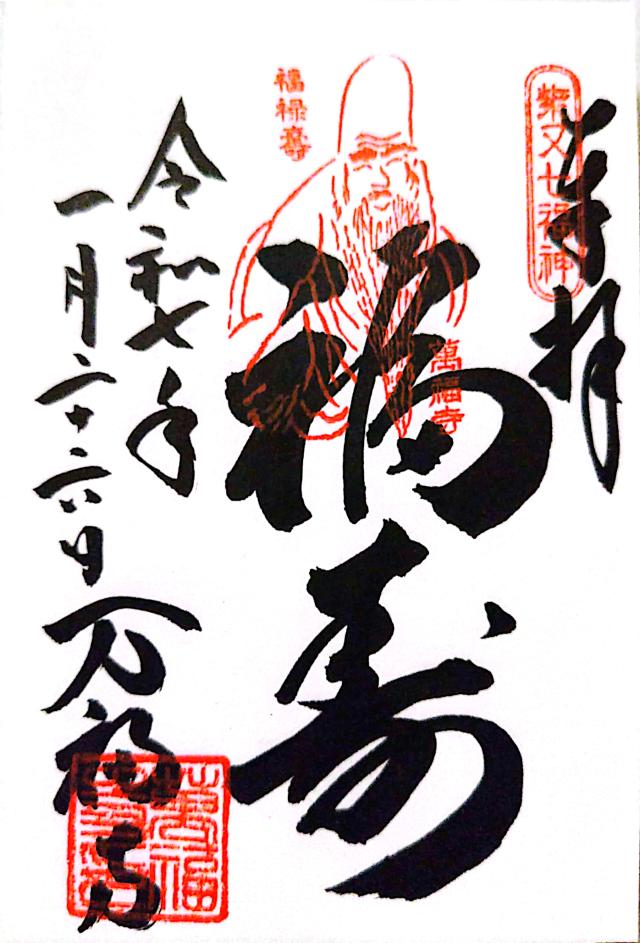 奉拝
柴又七福神
福寿
福禄壽
萬福寺
令和七年
一月二十六日
万福寺
萬福寺